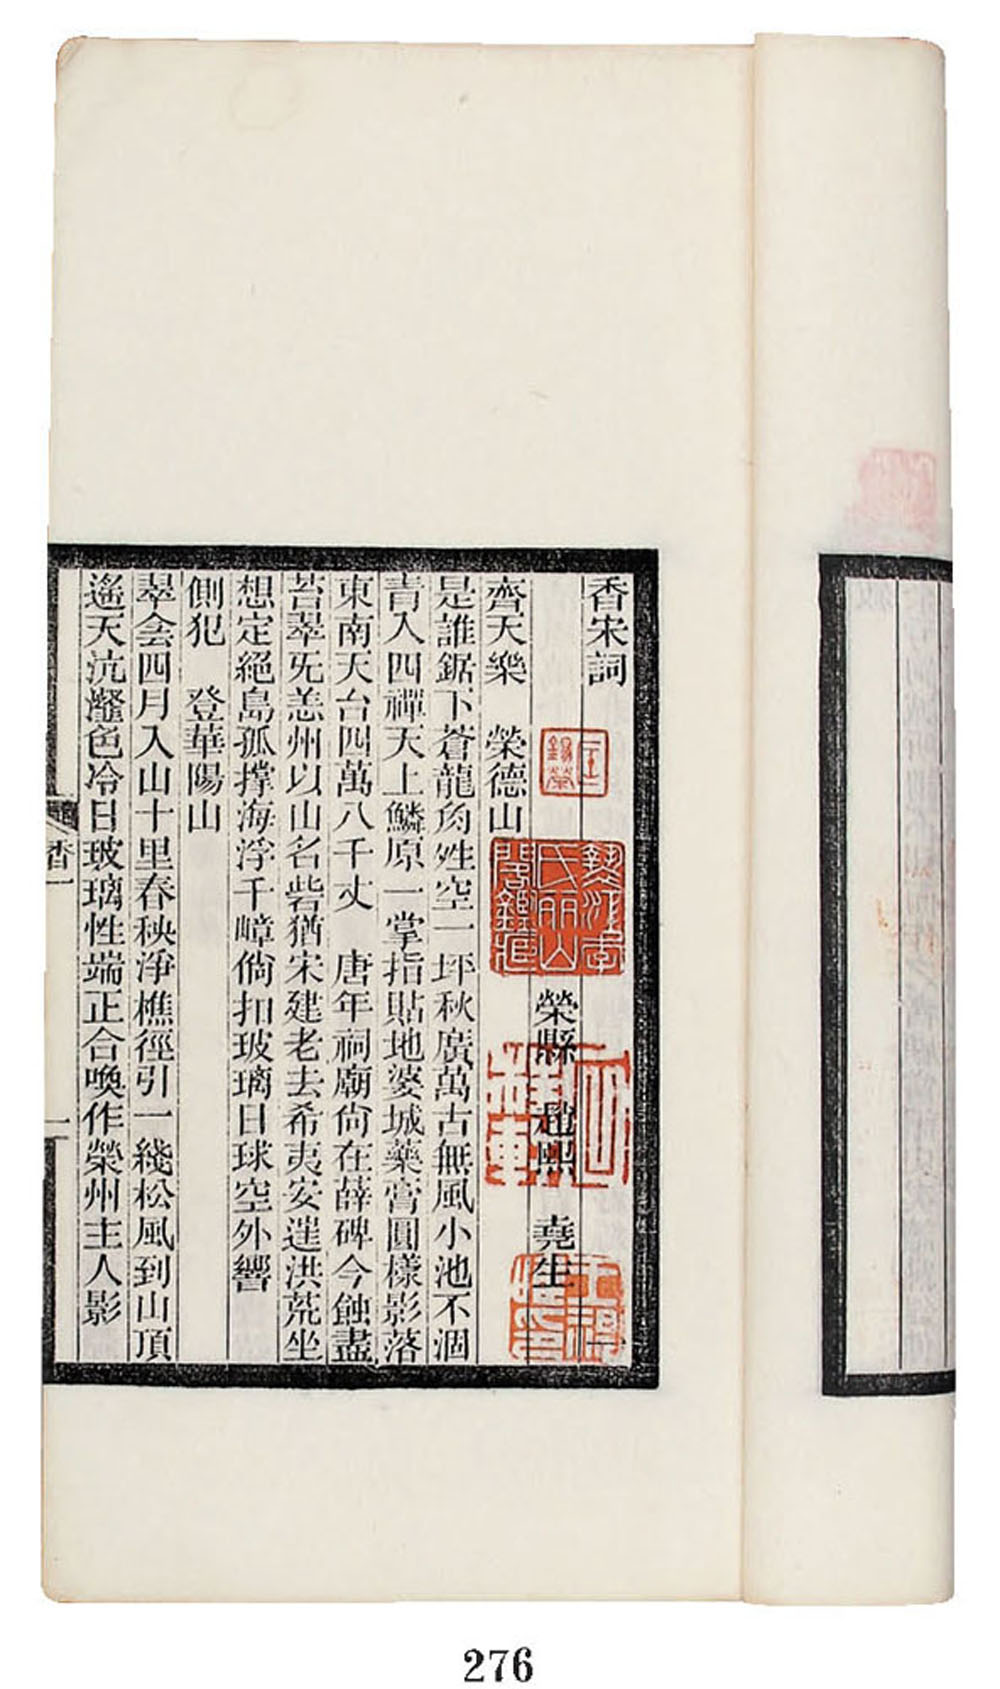 香宋詞
榮縣 趙熙 堯生
齊天樂 榮德山
是誰鋸下蒼龍角姓空一坪秋廣萬古無風小池不涸
青入四禪天上鱗原一掌指貼地婆城藥膏圓樣影落
東南天台四萬八千丈 唐年祠廟尚在薛碑今蝕盡
苔翠旡恙州以山名砦猶宋建老去希夷安遳洪荒坐
想定絕島孤撑海浮千嶂倘扣玻璃日球空外響
側犯 登華陽山
翠侌四月入山十里春秧淨樵徑引一綫松風到山頂
遙天沆瀣色冷日玻璃性端正合喚作榮州主人影
香一
一
綦江李
氏丽山
閣鑑藏
276